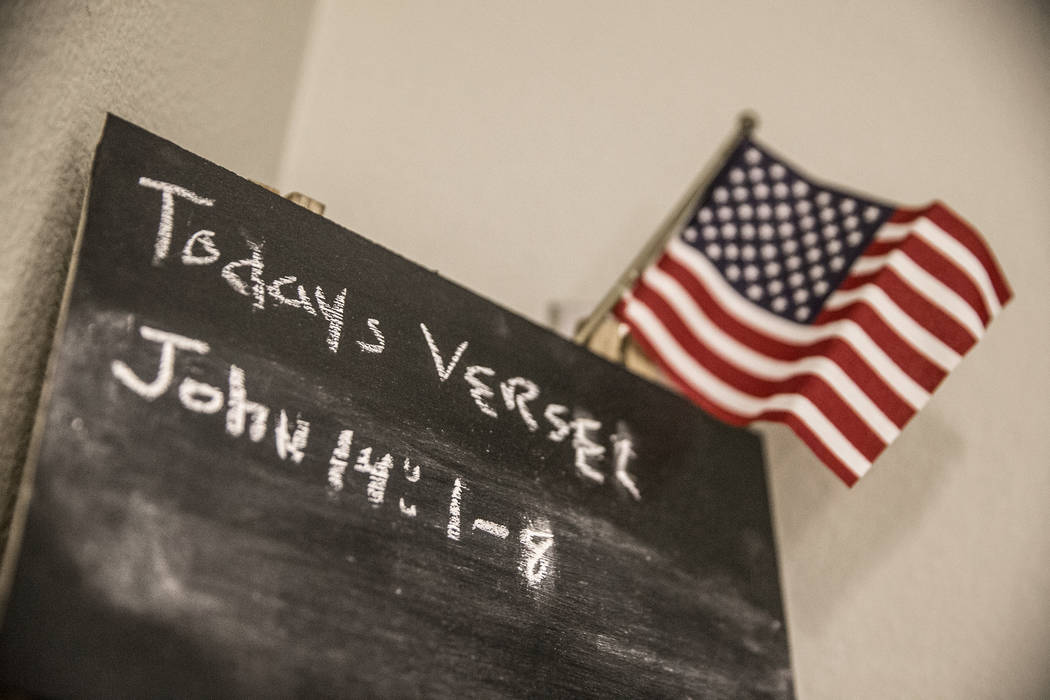 Todays VERSE:
John 14:1-8